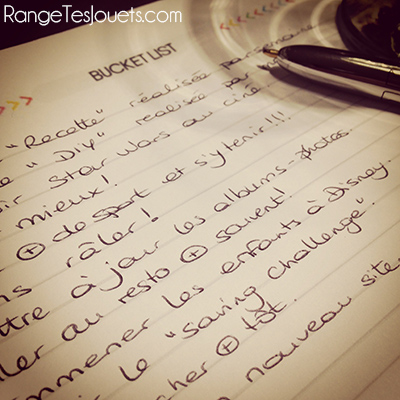 RangeTesJouets.com
BUCKET LIST
"Recette" réalisée par
"DIY" réalisée par
Star Wars au ciné
mieux!
⊕ de sport et s'y tenir!!!
râler!
à jour les albums-photos.
au resto ⊕ souvent!
les enfants à Disney.
le "saving challenge".
⊕ tôt.
nouveau site